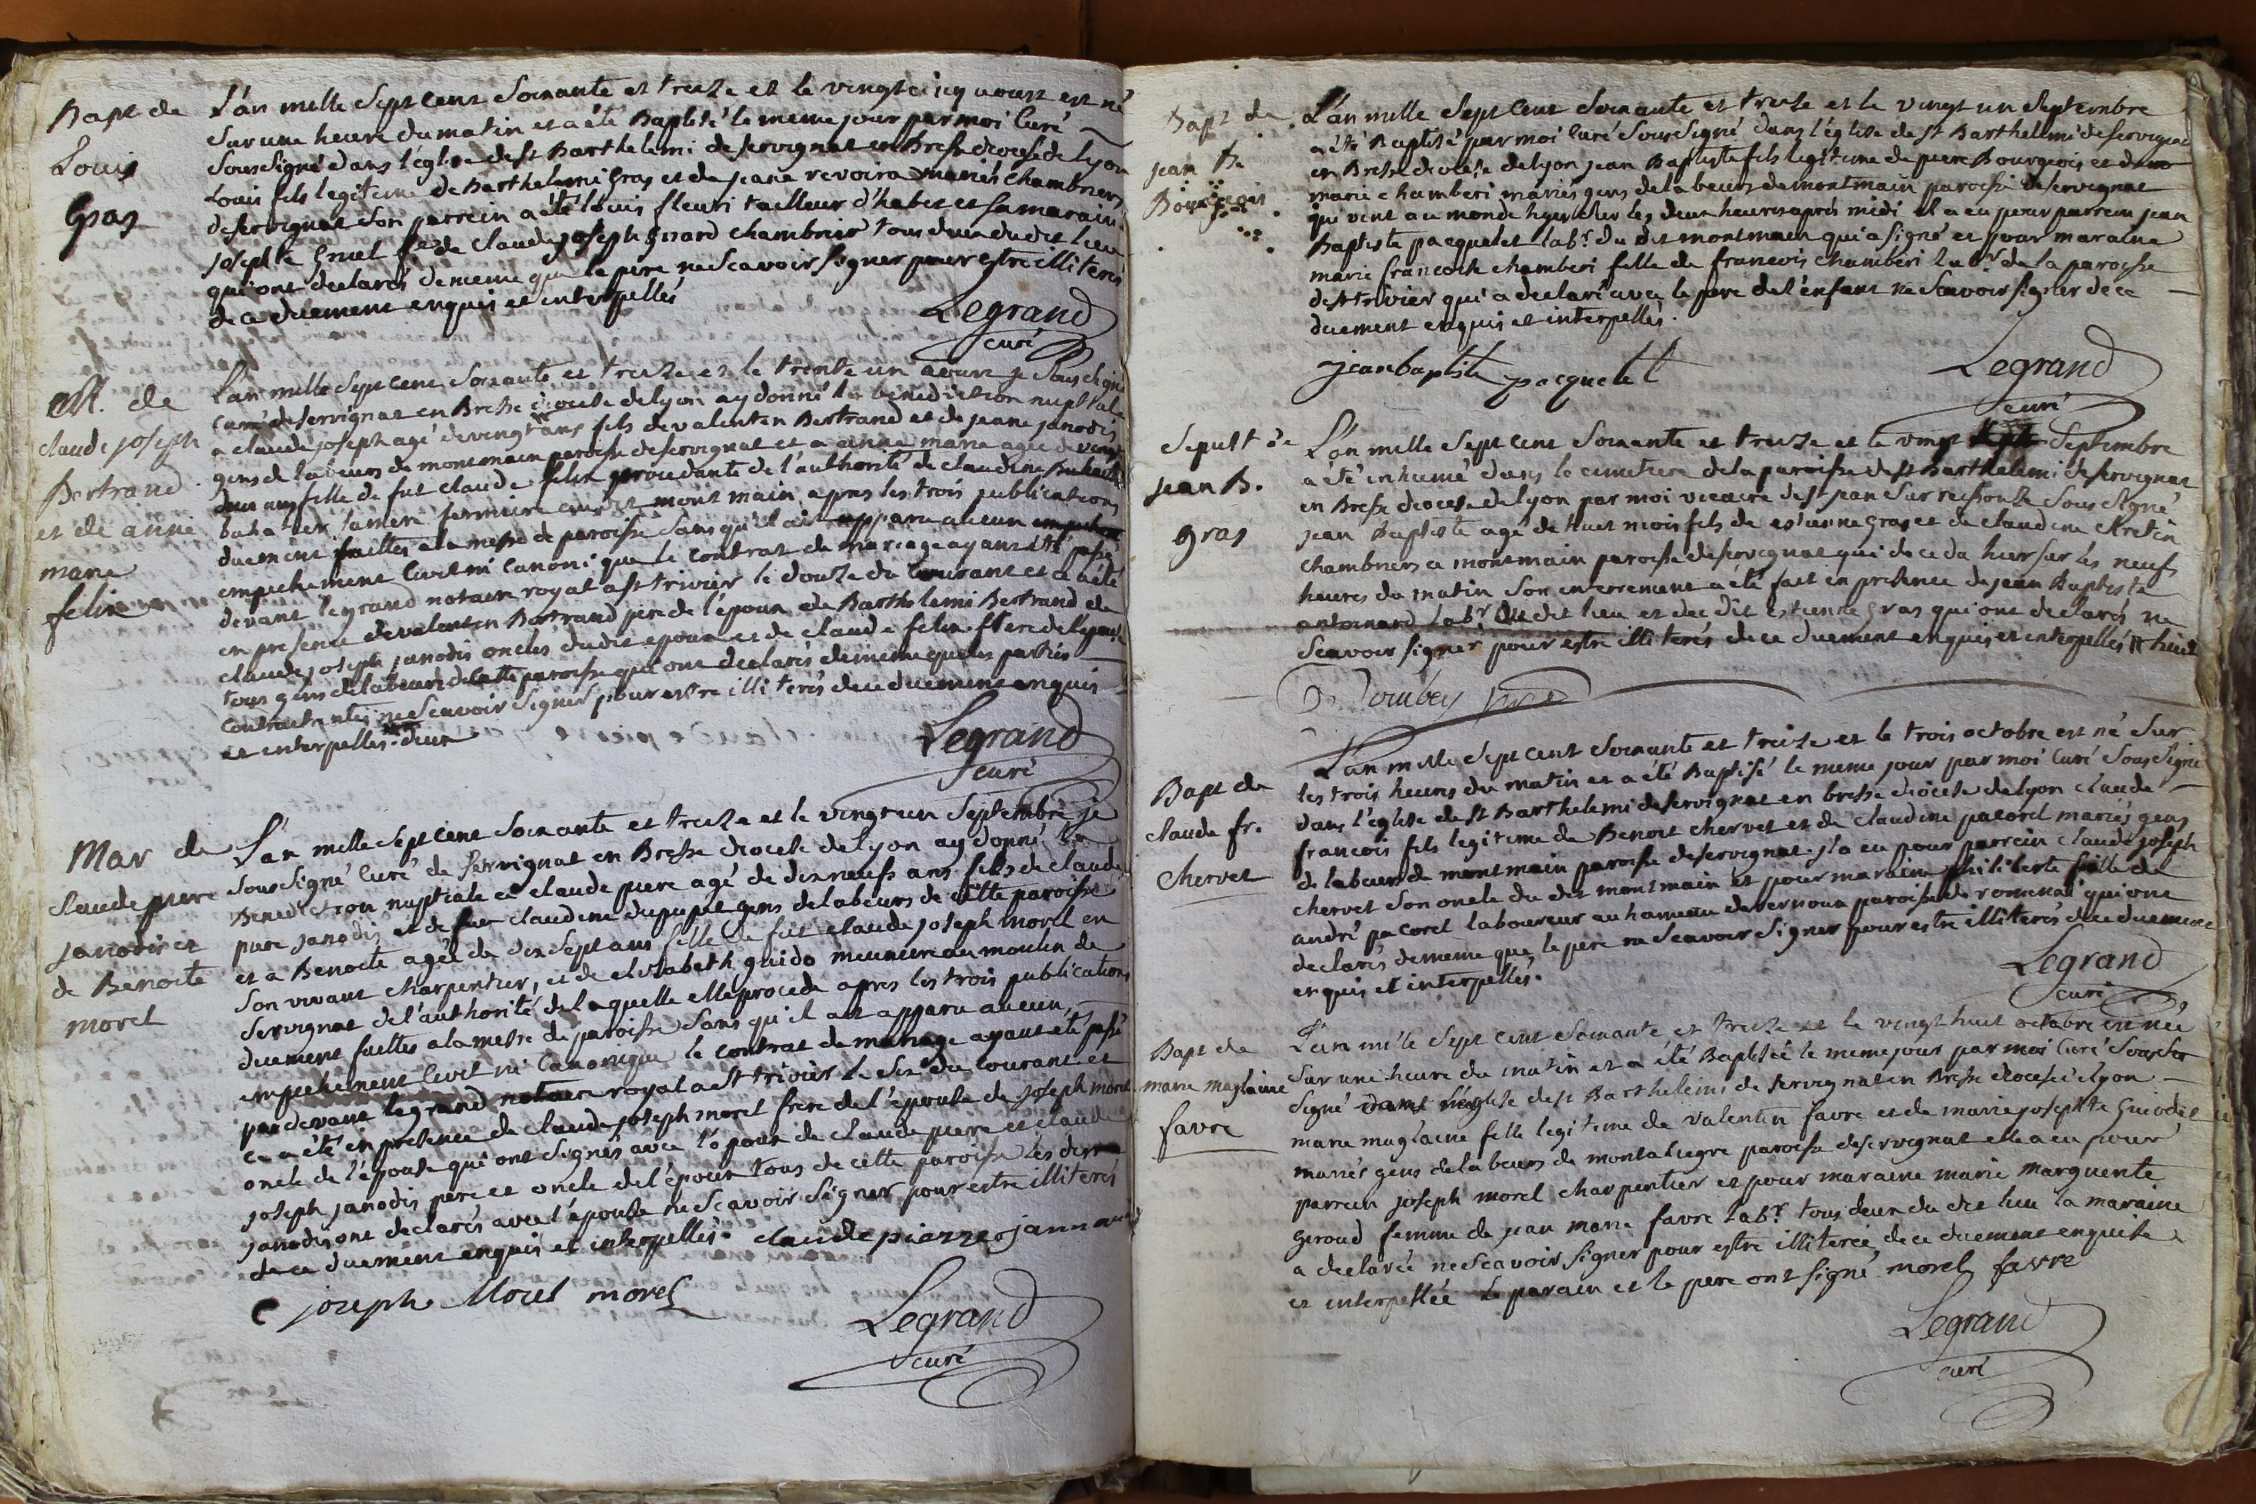 Bapt de
Louis
Gras
L'an mille sept cent soixante et treize et le vingt cinq aoust est né
sur une heure du matin et a été Baptisé le meme jour par moi Curé
soussigné dans l'église de st Barthelemi de servignat en Bresse diocese de lyon
Louis fils legitime de Barthelemi Gras et de jeane revoira mariés chambriers
de servignat son parrein a été louis fleuri tailleur d'habit et sa maraine
josephte Gruel fe de claude joseph girard chambrier tous deux du dit lieu
qui ont declarés de meme que le pere ne scavoir signer pour estre illiterés
de ce duement enquis et interpellés
Legrand
curé
M. de
claude joseph
Bertrand
et de anne
marie
felix
L'an mille sept cent soixante et treize et le trente un aoust je soussigné
Curé de servignat en Bresse diocese de lyon ay donné la bénédiction nuptiale
a claude joseph agé de vingt ans fils de valentin Bertrand et de jeane janodis
gens de labeurs de montmain paroisse de servignat et a anne marie agée de vingt
deux ans fille de fut claude felix procedante de l'authorité de claudine
sa mere fermiere au dit mont main apres les trois publications
duement faittes a la messe de paroisse sans qu'il ait apparu aucun
empechement Civil ni Canonique le contrat de mariage ayant été passé
devant legrand notaire royal a st trivier le douze du courant et a été
en presence de valentin Bertrand pere de l'époux de Barthelemi Bertrand de
claude joseph janodis oncles du dit epoux et de claude felix frere de l'epouse
tous gens de labeurs de cette paroisse qui ont declarés de meme que les parties
contractantes ne scavoir signer pour estre illiterés de ce duement enquis
et interpellés. deux
Legrand
curé
Mar de
claude piere
janodis et
de Benoite
morel
L'an mille sept cent soixante et treize et le vingt un septembre je
soussigné Curé de servignat en Bresse diocese de lyon ay donné la
Benediction nuptiale a claude piere agé de dix neufs ans fils de claude
piere janodis et de fut claudine dupupet gens de labeurs de cette paroisse
et a Benoite agée de dix sept ans fille de fut claude joseph morel en
son vivant charpentier, et de elizabeth guido meuniere au moulin de
servignat de l'authorité de laquelle elle procede apres les trois publications
duement faittes a la messe de paroisse sans qu'il ait apparu aucun
empechement Civil ni Canonique le contrat de mariage ayant été passé
par devant legrand notaire royal a st trivier le six du courant et
ce a été en presence de claude joseph morel frere de l'épouse de joseph morel
oncle de l'épouse qui ont signés avec l'époux de claude piere et claude
joseph janodis pere et oncle de l'époux tous de cette paroisse les dits
janodis ont declarés avec l'épouse ne scavoir signer pour estre illiterés
de ce duement enquis et interpellés. claude piarre
joseph Morel morel
Legrand
curé
bapt de
jean Bte
Bourgeois
L'an mille sept cent soixante et treize et le vingt un septembre
a été Baptisé par moi Curé soussigné dans l'église de st Barthellmi de servignat
en Bresse diocese de lyon jean Baptiste fils legitime de piere Bourgeois et de
marie chamberi mariés gens de labeurs de montmain paroisse de servignat
qui vint au monde hyer sur les deux heures aprés midi il a eu pour parrein jean
Baptiste pacquelet labr. du dit montmain qui a signé et pour maraine
marie francoise chamberi fille de francois chamberi labr. de la paroisse
de st trivier qui a declaré avec le pere de l'enfant ne scavoir signer de ce
duement enquis et interpellés.
jean baptiste pacquelet
Legrand
curé
Sepult de
jean B.
gras
L'an mille sept cent soixante et treize et le vingt septembre
a été inhumé dans le cimetiere de la paroisse de st Barthelemi de servignat
en Bresse diocese de lyon par moi vicaire de st jean sur reissouze sous signé
jean Baptiste agé de huit mois fils de estienne gras et de claudine Cretin
chambriers a montmain paroisse de servignat qui deceda hier sur les neufs
heures du matin son enterrement a été fait en presence de jean Baptiste
antoinard labr. du dit lieu et du dit estienne gras qui ont declarés ne
scavoir signer pour estre illiterés de ce duement enquis et interpellés huit
Dombey
Bapt de
claude fr.
chervet
L'an mille sept cent soixante et treize et le trois octobre est né sur
les trois heures du matin et a été Baptisé le meme jour par moi Curé soussigné
dans l'église de st Barthelemi de servignat en bresse diocese de lyon claude
francois fils legitime de Benoit chervet et de claudine pacoret mariés gens
de labeurs de montmain paroisse de servignat il a eu pour parrein claude joseph
chervet son oncle du dit montmain et pour maraine philiberte fille de
andré pacoret laboureur au hameau de vernoux paroisse de romenai qui ont
declarés de meme que le pere ne scavoir signer pour estre illiterés de ce duement
enquis et interpellés.
Legrand
curé
Bapt de
marie maglaine
favre
L'an mille sept cent soixante et treize et le vingt huit octobre est née
sur une heure du matin et a été Baptisée le meme jour par moi Curé sous
signé dans l'église de st Barthelemi de servignat en Bresse diocese de lyon
marie maglaine fille legitime de valentin favre et de marie josephte Guiodet
mariés gens de labeurs de montalegre paroisse de servignat elle a eu pour
parrein joseph morel charpentier et pour maraine marie marguerite
Geroud femme de jean marie favre labr. tous deux du dit lieu la maraine
a declarée ne scavoir signer pour estre illiterée de ce duement enquise
et interpellée le parain et le pere ont signé morel favre
Legrand
curé